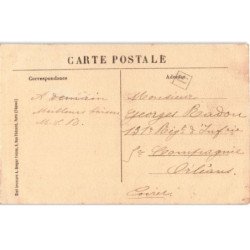 CARTE POSTALE
Correspondance
Adresse
A demain
Meilleurs baisers
Monsieur
Georges Radon
131e Régt d'Infrie
Compagnie
Orléans
Loiret